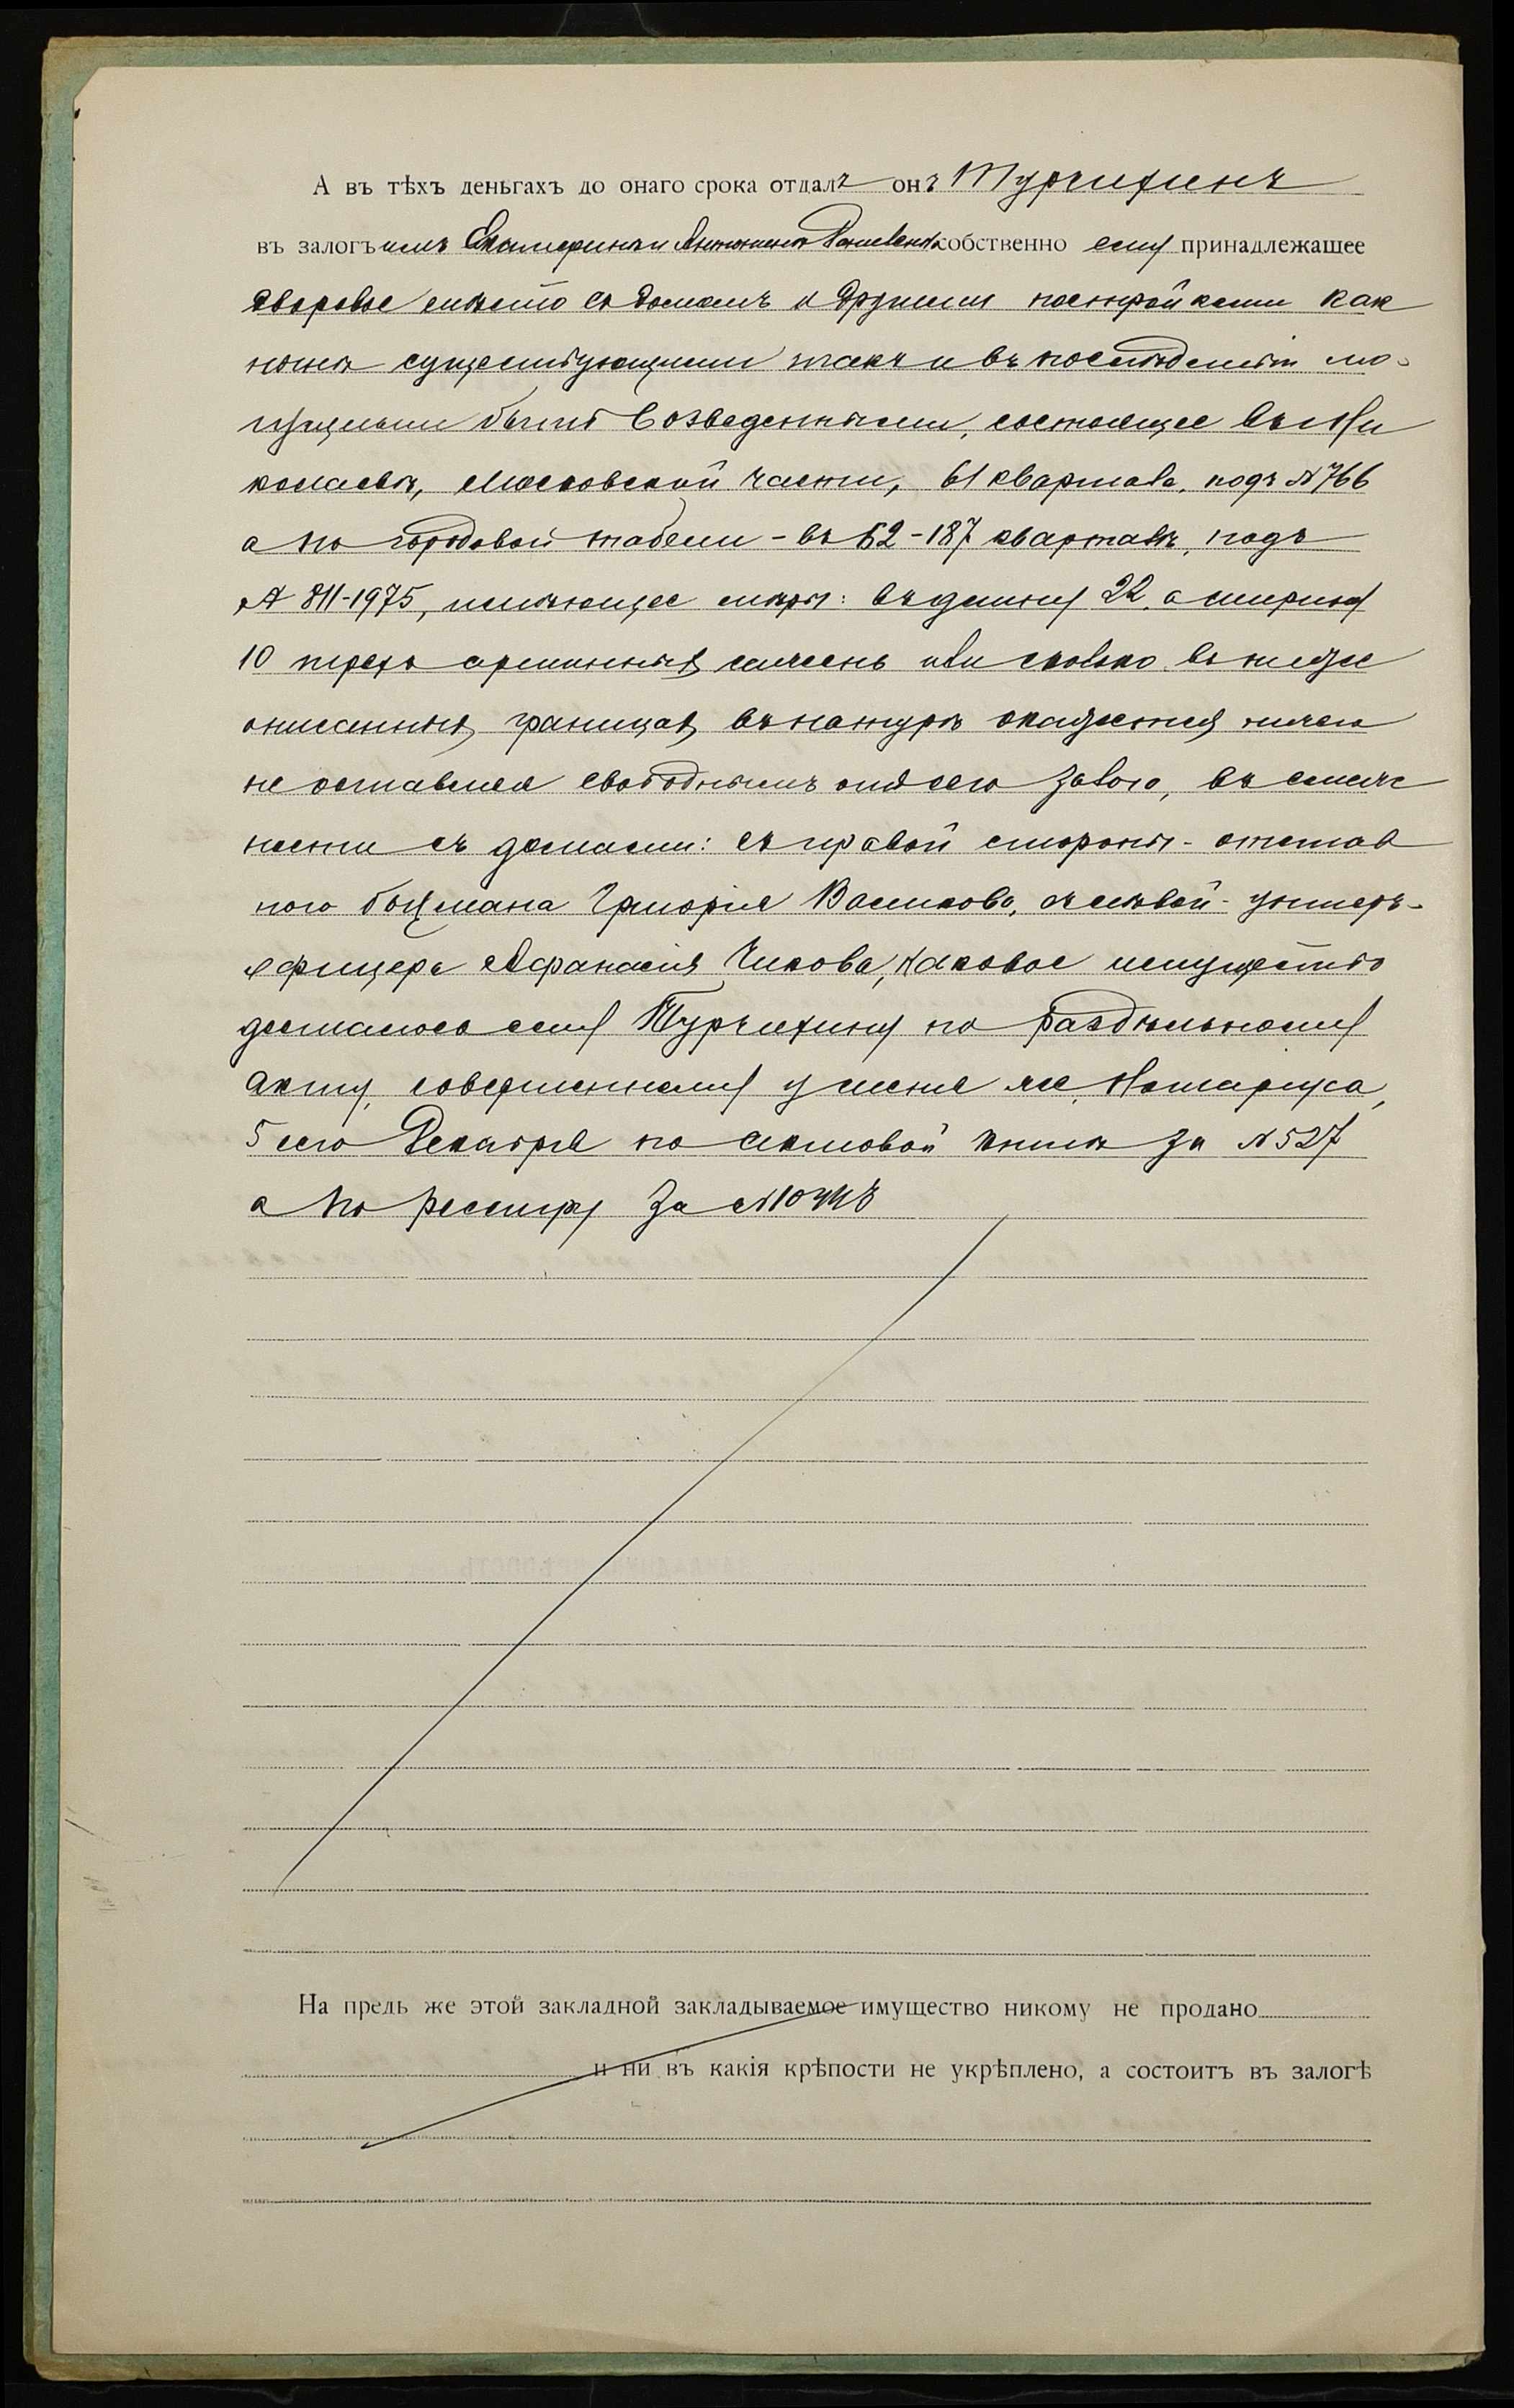 А въ тѣхъ деньгахъ до онаго срока отдалъ онъ Турчихинъ
въ залогъ имъ Екатеринѣ и Антонинѣ собственно ему принадлежащее
дворовое мѣсто съ домомъ и другими постройками как
нынѣ существующими такъ и въ послѣдствіи мо-
гущими быть возведенными, состоящее въ Ни
колаевѣ, Московской части, 61 квартала, подъ № 766
а по городовой табели - въ 62-187 кварталѣ, подъ
№ 811-1975, имѣющее мѣры: въ длину 22, а ширину
10 трехъ аршинныхъ саженъ или сколько въ ниже
описанныхъ границахъ въ натурѣ окажется ничего
не оставляя свободнымъ отъ сего залога, въ смеж
ности съ домами: съ правой стороны - отстав
ного боцмана Григорія Василкова, съ лѣвой - унтеръ-
офицера Афанасія Чикова, каковое имущество
досталось ему Турчихину по раздѣльному
акту, совершенному у меня же, Нотаріуса,
5 сего Декабря по актовой книгѣ за № 527
а по реестру за №
На предь же этой закладной закладываемое имущество никому не продано
и ни въ какія крѣпости не укрѣплено, а состоитъ въ залогѣ